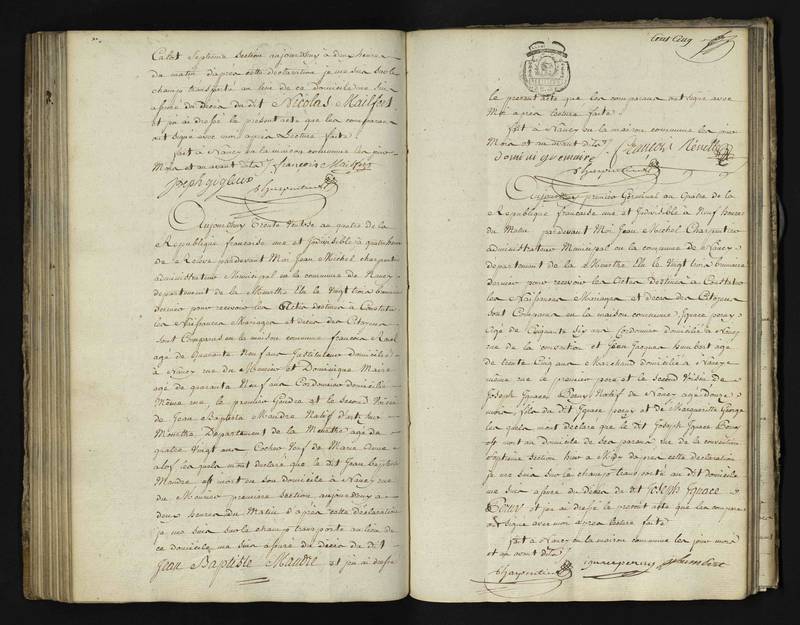 Calot Septieme Section aujourdhuy à deux heures
du matin daprès cette declaration je me suis sur le
champs transporté au lieu de ce domicile me suis
assuré du décès du dit Nicolas Mailfert
et j'ai dressé le present acte que les comparans
ont signé avec moi après Lecture faite
fait à Nancy en la maison commune les jour
Mois et an avant dits /. françois
Joseph gigleux
Charpentier
Aujourdhuy Trente Ventose an quatre de la
Republique francaise une et Indivisible à quatre heures
de Relevé pardevant Moi Jean Michel charpentier
administrateur Municipal en la commune de Nancy
departement de la Meurthe Elu le Vingt trois brumaire
dernier pour recevoir les Actes destinés à Constituer
les Naissances Mariages et décès des Citoyens
sont Comparus en la maison commune francois
agé de quarante Neuf ans Instituteur domicilié
à Nancy rue du Moulin et Dominique Maire
agé de quarante Neuf ans Cordonnier domicilié
Même rue le premier Gendre et le second Voisin
de Jean Baptiste Maudre Natif d'art sur
Meurthe Departement de la Meurthe agé de
quatre Vingt ans Cocher Veuf de Marie Anne
les quels mont declaré que le dit Jean Baptiste
Maudre est mort en son domicile à Nancy rue
du Moulin premiere section aujourdhuy à
deux heures du Matin d'après cette déclaration
je me suis sur le champs transporté au lieu de
ce domicile me suis assuré du décès du dit
Jean Baptiste Maudre et j'ai dressé
Cent Cinq
le present acte que les comparans ont signé avec
Moi apres lecture faite
fait à Nancy en la maison commune les jour
Mois et an avant dits /. francois
Dominique maire
Charpentier
Aujourdhuy premier Germinal an Quatre de la
Republique francaise une et Indivisible à Neuf heures
du Matin pardevant Moi Jean Michel Charpentier
administrateur Municipal en la commune de Nancy
departement de la Meurthe Elu le Vingt trois brumaire
dernier pour recevoir les Actes destinés à Constituer
les Naissances Mariages et décès des Citoyens
sont Comparus en la maison commune Ignace
agé de Cinquante Six ans Cordonnier domicilié à Nancy
rue de la Convention et Jean Jacques Humbert agé
de trente Cinq ans Marchand domicilié à Nancy
même rue le premier pere et le second Voisin de
Joseph Ignace Natif de Nancy agé Douze
mois, fils du dit Ignace et de Marguerite George
les quels mont declaré que le dit Joseph Ignace
est mort au Domicile de ses parens rue de la convention
Septieme Section hier à Midy dapres cette declaration
je me suis sur le champs transporté au dit domicile
me suis assuré du Décès du dit Joseph Ignace
et j'ai dressé le present acte que les comparans
ont signé avec moi apres lecture faite
fait à Nancy en la maison commune les jour mois
et an avant dits /.
Charpentier